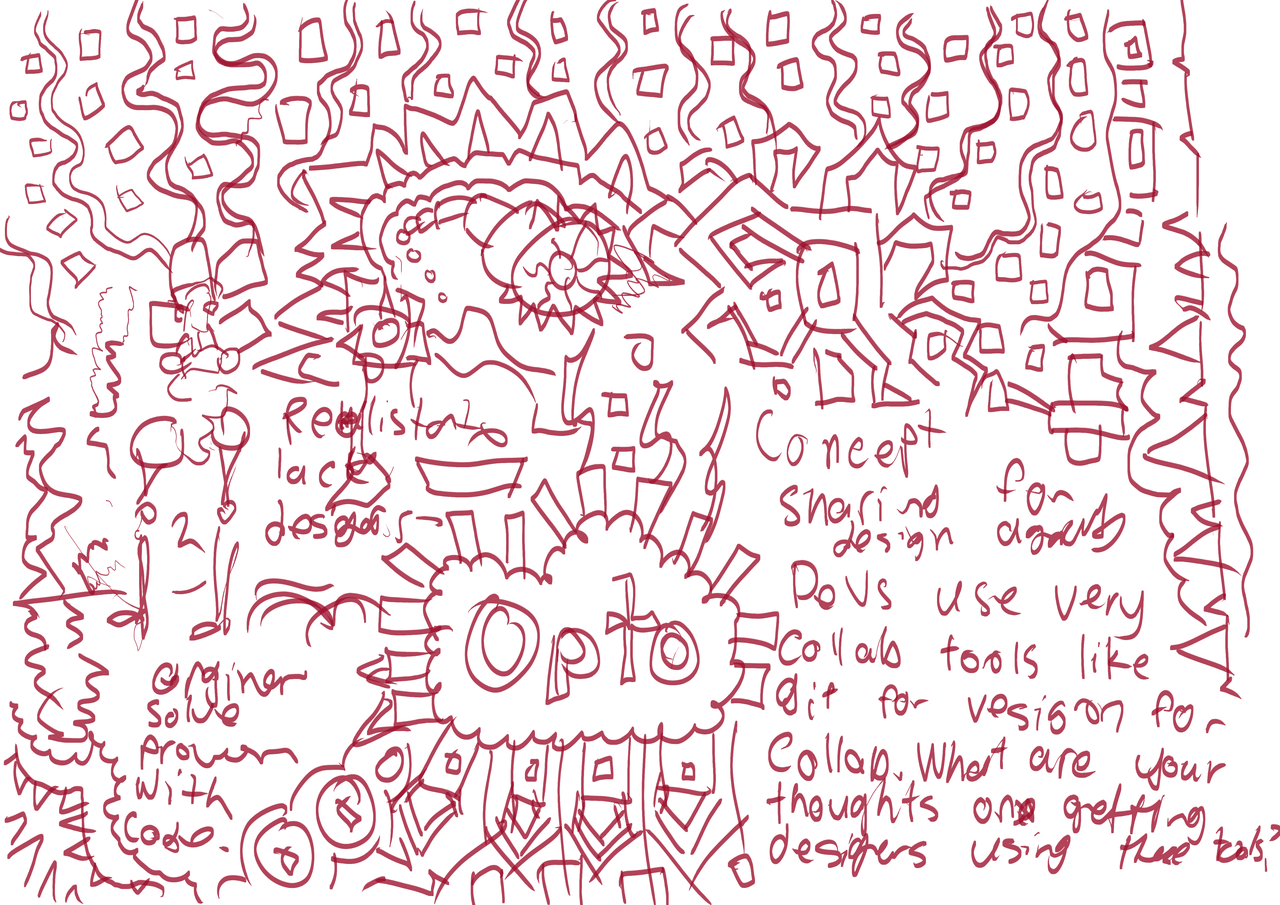 lack
Opto
solve
with
code.
Concept
sharing for
design agents
Devs use very
Collab tools like
git for vesigon for
Collab. What are your
thoughts on getting
designers using these tools,?